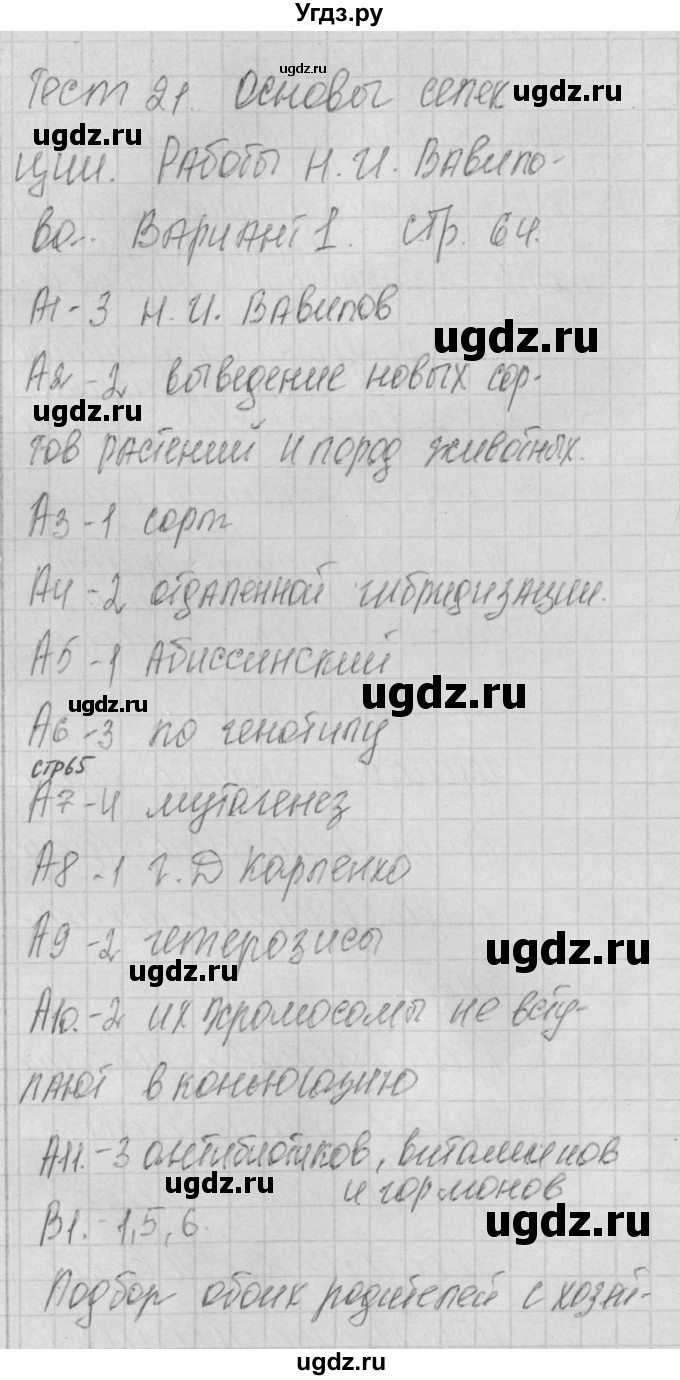 Угдз.ру
Тест 21. Основы селек
ugdz.ru
ugdz.ru
ugdz.ru
ции. Работы Н. И. Вавило-
ва.. Вариант 1. стр. 64.
А1-3 Н. И. Вавилов
ugdz.ru
А2-2 выведение новых сор-
ugdz.ru
тов растений и пород животных.
А3-1 сорт
А4-2 отдаленной гибридизации.
А5-1 Абиссинский
ugdz.ru
ugdz.ru
А6-3 по генотипу
стр65
А7-4 мутагенез
А8-1 Г. Д Карпенко
А9-2 гетерозисы
ugdz.ru
ugdz.ru
А10.-2 их хромосомы не всту-
пают в коньюгацию
А11.-3 антибиотиков, витаминов
ugdz.ru
и гормонов
ugdz.ru
В1.-1,5,6.
Подбор обоих родителей с хозяй-
ugdz.ru